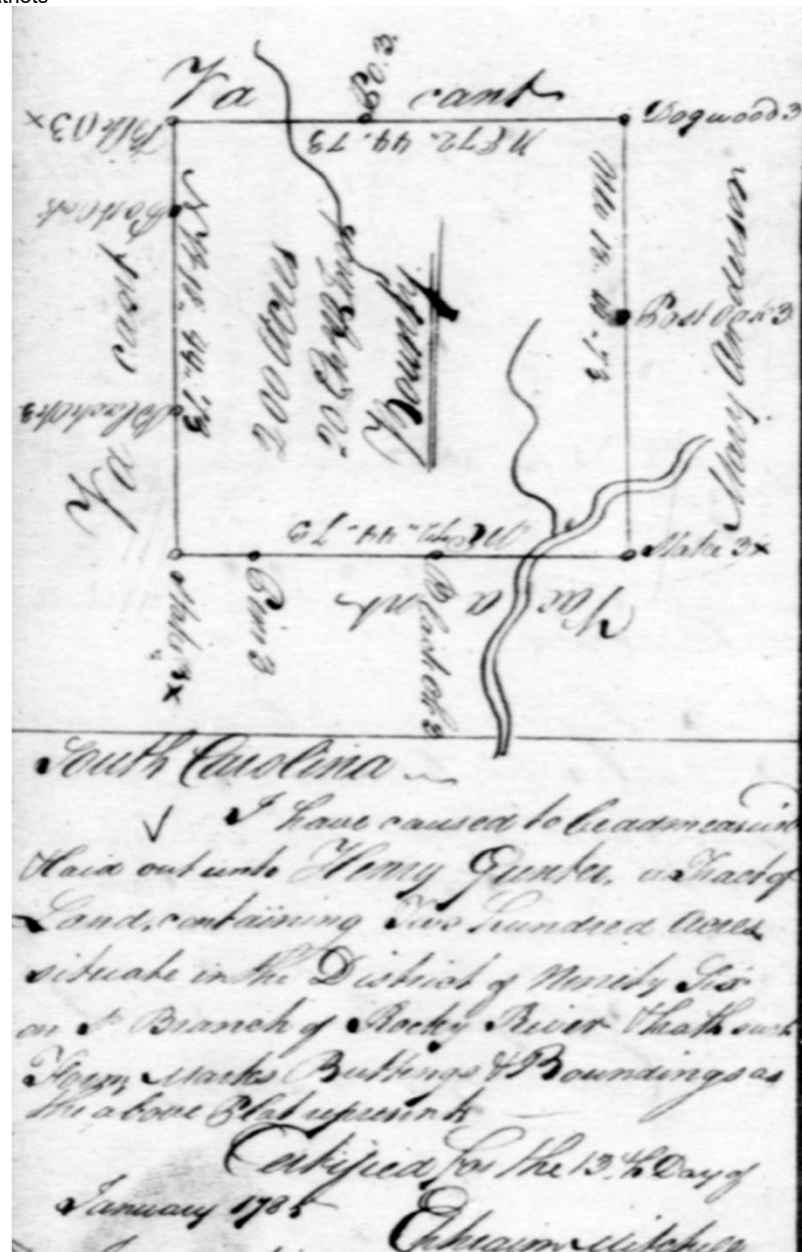 Va cant
P.O. 3
Blk O 3 x
Dogwood 3
NE 72. 44.73
Post Oak
NW 18. 44.73
Mary Anderson
Va cant
200 Acres
20 Chs
Bounty
Post Oak 3
Black Ok 3
NE 72. 44.73
Stake 3x
Stake 3x
Pine 3
Black Ok 3
Vac a nt
South Carolina
I have caused to be admeasured
& laid out unto Henry Gunter, a Tract of
Land, containing Two hundred Acres
situate in the District of Ninety Six
on a Branch of Rocky River & hath such
Form, Marks Buttings & Boundings as
the above Plat represents
Certified for the 13th Day of
January 1785
Ephraim Mitchell